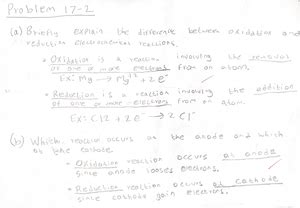 Problem 17-2
(a) Briefly explain the difference between oxidation and
reduction electrochemical reactions.
• Oxidation is a reaction involving the removal
of one or more electrons from an atom.
Ex: Mg → Mg²⁺ + 2e⁻
• Reduction is a reaction involving the addition
of one or more electrons from an atom.
Ex: Cl2 + 2e⁻ → 2Cl⁻
(b) Which reaction occurs at the anode and which
at the cathode
• Oxidation reaction occurs at anode
since anode looses electrons.
• Reduction reaction occurs at cathode
since cathode gain electrons.